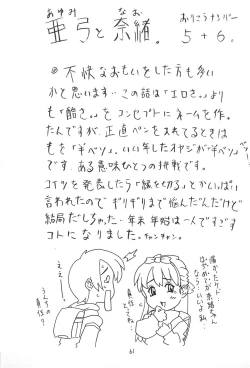 あゆみ なお
亜弓と奈緒。
おりこうナンバー
5+6。
◎不快なおもいをした方も多い
かと思います…この話は「エロさ。」より
も「酷さ。」をコンセプトにネームを作っ
たんですが、正直ペンを入れてるときは
もを「半ベソ」。いい年したオヤジが半ベソ
です。ある意味ひとつの挑戦です。
コイツを発表したら「縁を切る」とかいっぱい
言われたのでギリギリまで悩んだんだけど
結局だしちゃった…年末年始は一人ですごす
コトになりました。チャンチャン。
ええー!
うえちの
責任?
責任
とってね…
61